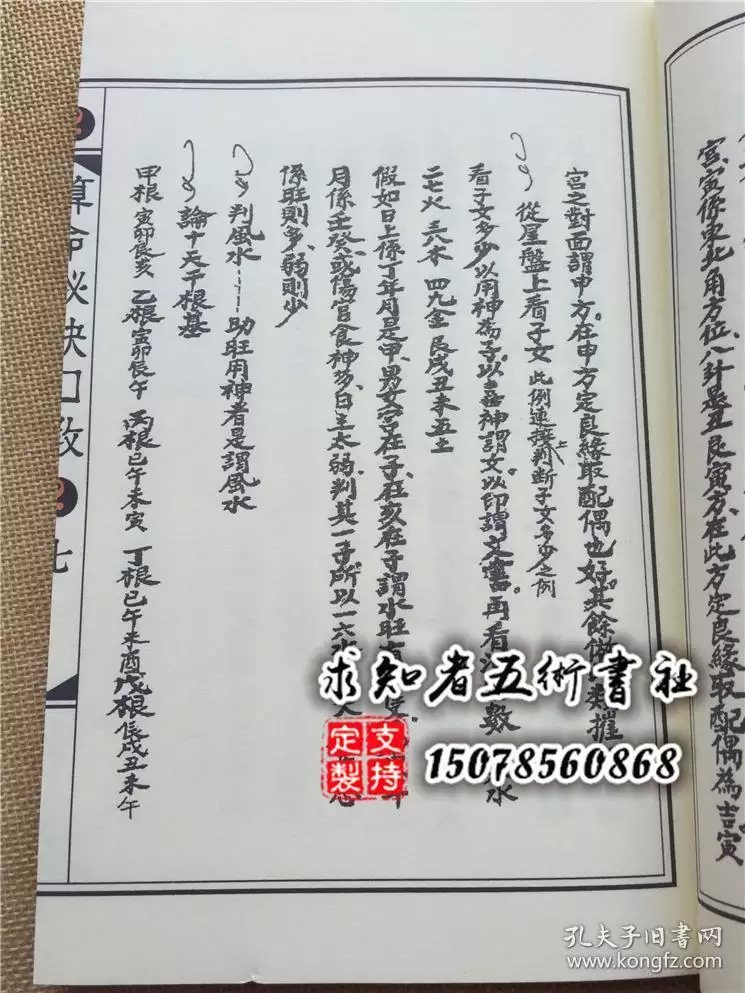 宮寅係東北角方位八計是丑艮寅方在此方定良緣取配偶為吉寅
宮之對面謂申方。在申方定良緣取配偶也好。其餘數摧
從星盤上看子女 此例連上判斷子女多少之例
看子女多少以用神為子。以喜神謂女以印謂文書。再看數水
二七火 三八木 四九金 艮戌丑未五土
假如日上係丁年月是甲男女宮在子在亥在子謂水旺
月係壬癸或傷官食神多日主太弱判其一子所以一六水
係旺則多弱則少
判風水——助旺用神者是謂風水
論十天干根基
甲根寅卯辰亥 乙根寅卯辰午 丙根巳午未寅 丁根巳午未酉戊根辰戌丑未午
算命秘訣口教
七
求知者五術書社
支持定製
15078560868
孔夫子旧書网
www.kongfz.com